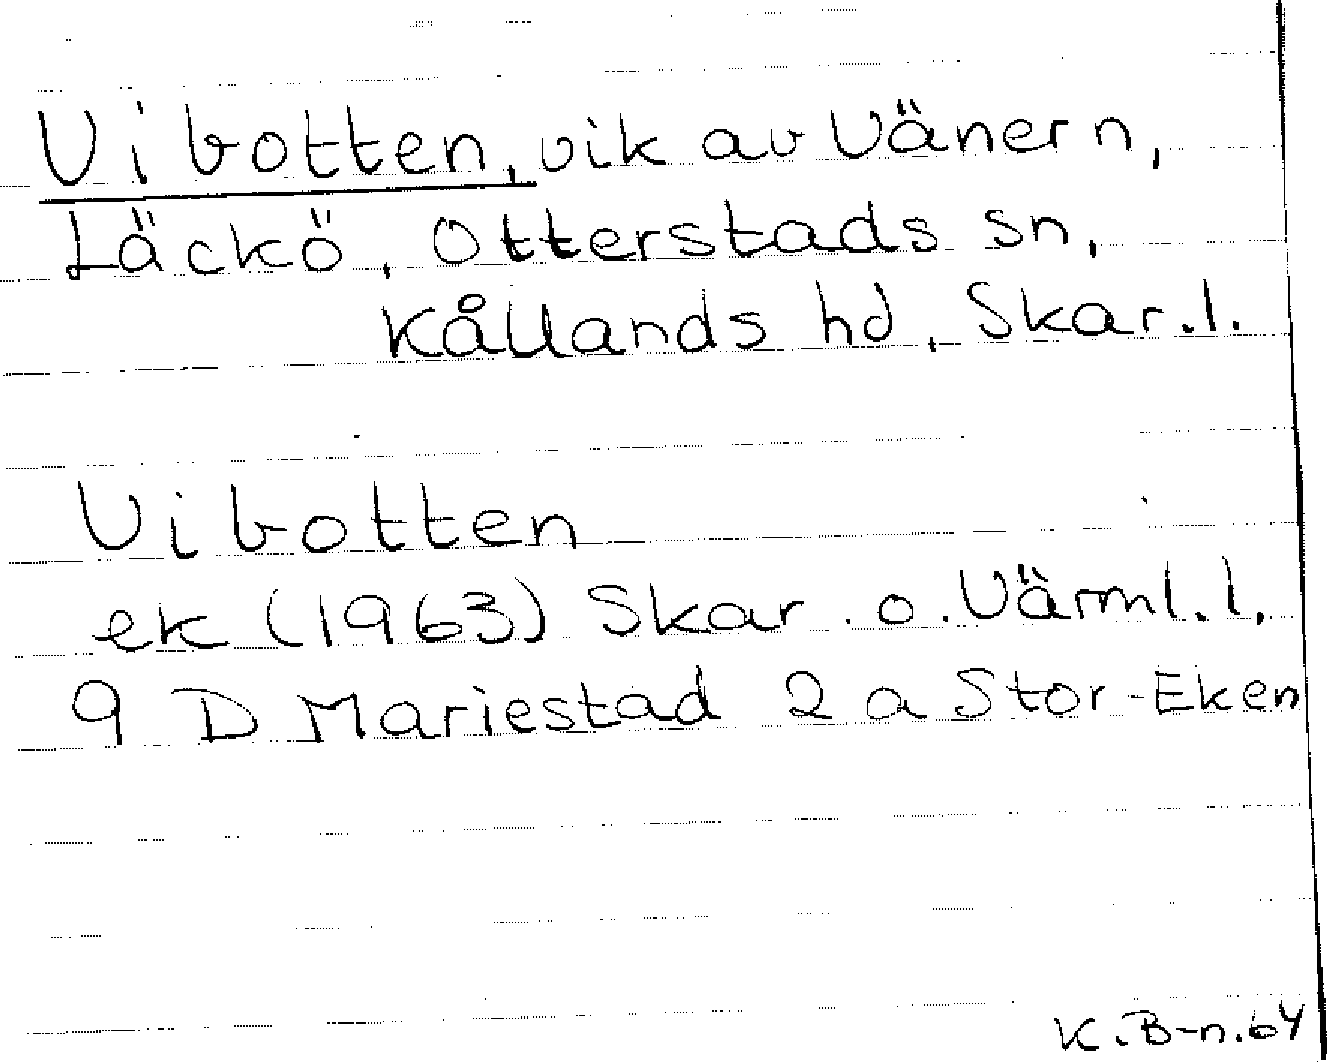 Vibotten, vik av Vänern,
Läckö, Otterstads sn,
Kållands hd, Skar. l.
Vibotten
ek (1963) Skar. o. Värml. l.
9 D Mariestad 2 a Stor-Eken
K. B-n. 64